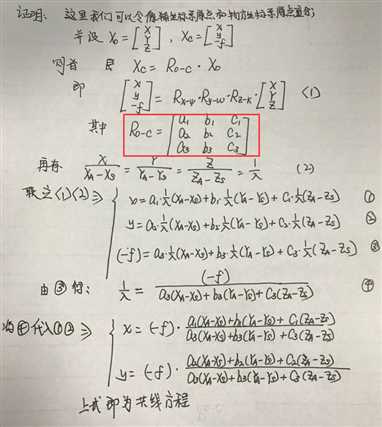 证明: 这里我们可以令像辅坐标系原点和物方坐标系原点重合
并设 X₀ = [X Y Z] , Xc = [x y -f]
则有 即 Xc = R₀₋c · X₀
即 [x y -f] = Rx-φ · Ry-ω · Rz-κ · [X Y Z] <1>
其中 R₀₋c = [a₁ b₁ c₁ a₂ b₂ c₂ a₃ b₃ c₃]
再有 X/(XA-XS) = Y/(YA-YS) = Z/(ZA-ZS) = 1/λ (2)
联立<1><2> ⇒ x = a₁·1/λ(XA-XS)+b₁·1/λ(YA-YS)+C₁·1/λ(ZA-ZS) ①
y = a₂·1/λ(XA-XS)+b₂·1/λ(YA-YS)+C₂·1/λ(ZA-ZS) ②
(-f) = a₃·1/λ(XA-XS)+b₃·1/λ(YA-YS)+C₃·1/λ(ZA-ZS) ③
由③得: 1/λ = (-f)/(a₃(XA-XS)+b₃(YA-YS)+C₃(ZA-ZS)) ④
将④代入①② ⇒ x = (-f)·(a₁(XA-XS)+b₁(YA-YS)+C₁(ZA-ZS))/(a₃(XA-XS)+b₃(YA-YS)+C₃(ZA-ZS))
y = (-f)·(a₂(XA-XS)+b₂(YA-YS)+C₂(ZA-ZS))/(a₃(XA-XS)+b₃(YA-YS)+C₃(ZA-ZS))
上式即为共线方程